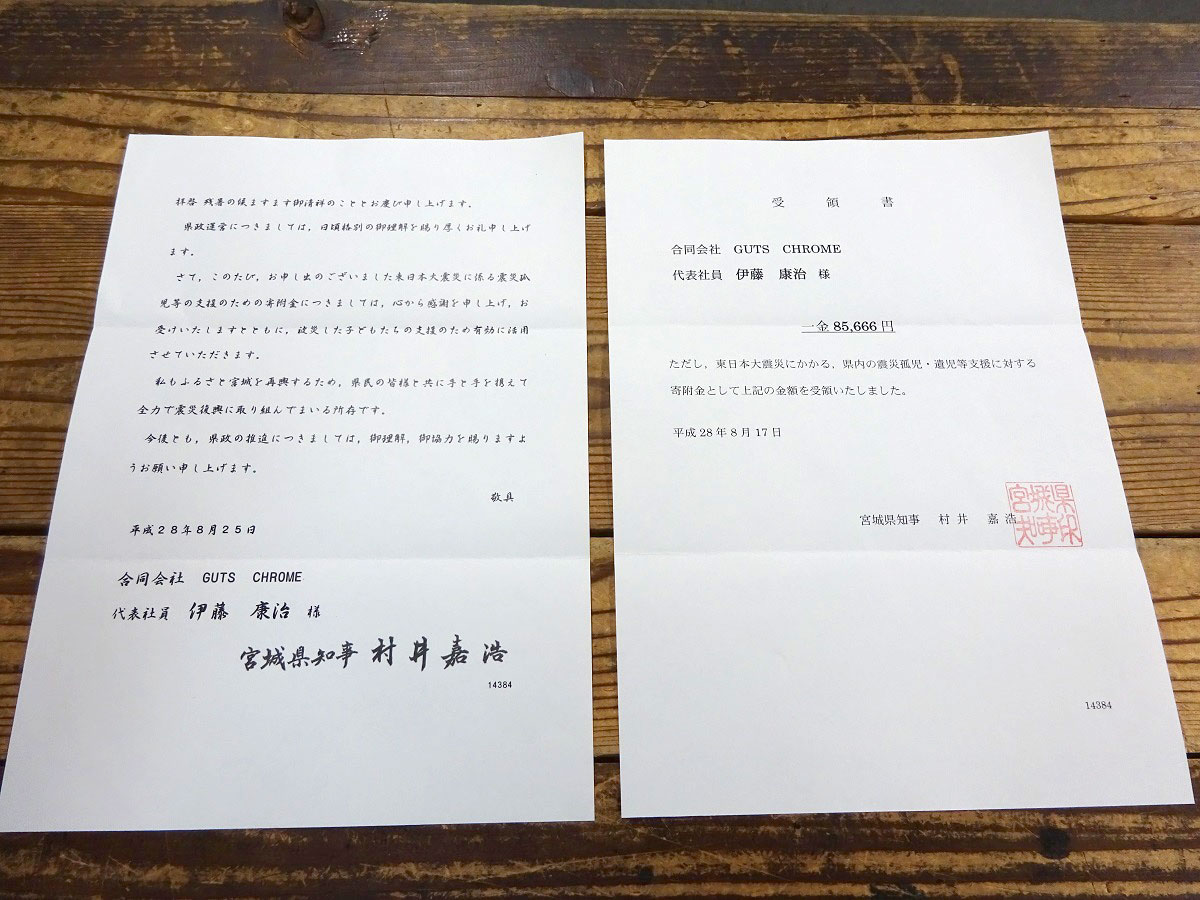 拝啓 残暑の候ますます御清祥のこととお慶び申し上げます。
県政運営につきましては，日頃格別の御理解を賜り厚くお礼申し上げ
ます。
さて，このたび，お申し出のございました東日本大震災に係る震災孤
児等の支援のための寄附金につきましては，心から感謝を申し上げ，お
受けいたしますとともに，被災した子どもたちの支援のため有効に活用
させていただきます。
私もふるさと宮城を再興するため，県民の皆様と共に手と手を携えて
全力で震災復興に取り組んでまいる所存です。
今後とも，県政の推進につきましては，御理解，御協力を賜りますよ
うお願い申し上げます。
敬具
平成２８年８月２５日
合同会社　GUTS　CHROME
代表社員　伊藤　康治　様
宮城県知事 村井嘉浩
14384
受　領　書
合同会社　GUTS　CHROME
代表社員　伊藤　康治　様
一金 85,666 円
ただし，東日本大震災にかかる，県内の震災孤児・遺児等支援に対する
寄附金として上記の金額を受領いたしました。
平成 28 年 8 月 17 日
宮城県知事　村 井　嘉 浩
宮城県知事印
14384